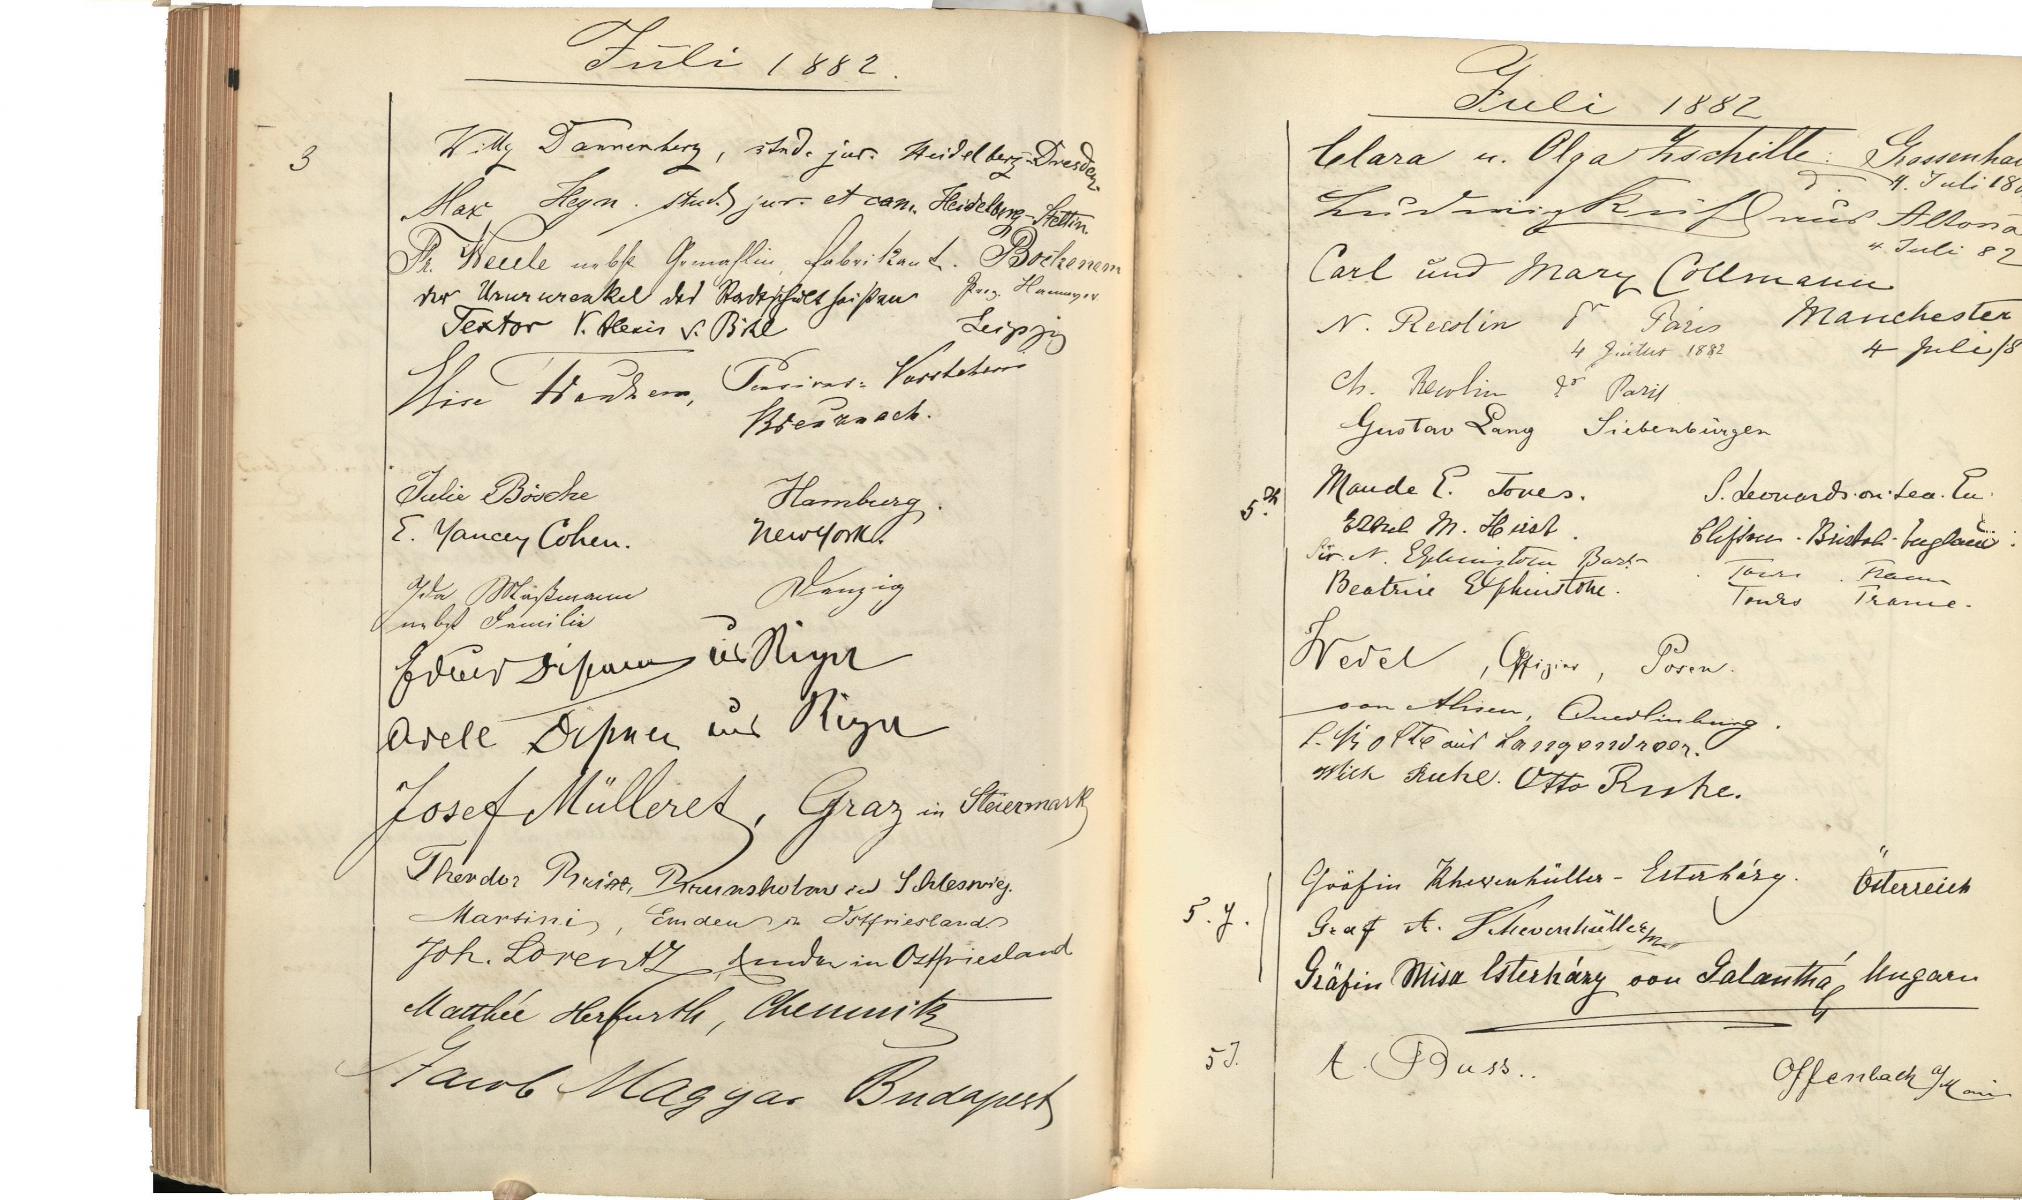 Juli 1882.
3
Willy Dannenberg, stud. jur. Heidelberg-Dresden.
Max Heyn. stud. jur. et cam. Heidelberg-Stettin.
Fr. Weule nebst Gemahlin, Fabrikant. Bockenem
der Urururenkel des Stadtschultheißen Prov. Hannover
Textor V. Alexis Leipzig
Elise Pensions-Vorsteherin
Kreuznach.
Julie Bösche Hamburg.
E. Yancey Cohen. New York.
Ida Danzig
nebst Familie
aus Riga
Adele aus Riga
Josef Mülleret, Graz in Steiermark
Theodor in Schleswig.
Martini, Emden in Ostfriesland
Joh. Lorentz, Emden in Ostfriesland
Matthée Herfurth, Chemnitz
Jacob Magyar Budapest
Juli 1882
Clara u. Olga Zschille. Grossenhai
4. Juli 18
Ludwig aus Altona
4 Juli 82
Carl und Mary Collmann
Manchester
4 Juli/8
N. Rewlin Paris
4 1882
Ch. Rewlin Paris
Gustav Lang Siebenbürgen
5th
Maude E. Jones. S. Leonards-on-Sea. En.
Ethel M. Hirst. Clifton-Bristol-England.
Sir N. Elphinstone Bart Tours France
Beatrice Elphinstone. Tours France.
Wedel, Offizier, Posen.
von Ahsen, Quedlinburg.
L. Nolte aus Langendreer.
Wilh Ruhe. Otto Ruhe.
5. J.
Gräfin Khevenhüller-Esterházy. Österreich
Graf A. Khevenhüller
Gräfin Misa Esterházy von Galanthá, Ungarn
5 J.
A. Buss.. Offenbach a/Main